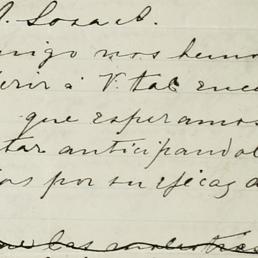 J. Sosa A.
migo nos hemo
erir á V. tal enc
que esperamos
tar anticipandol
as por su eficaz a